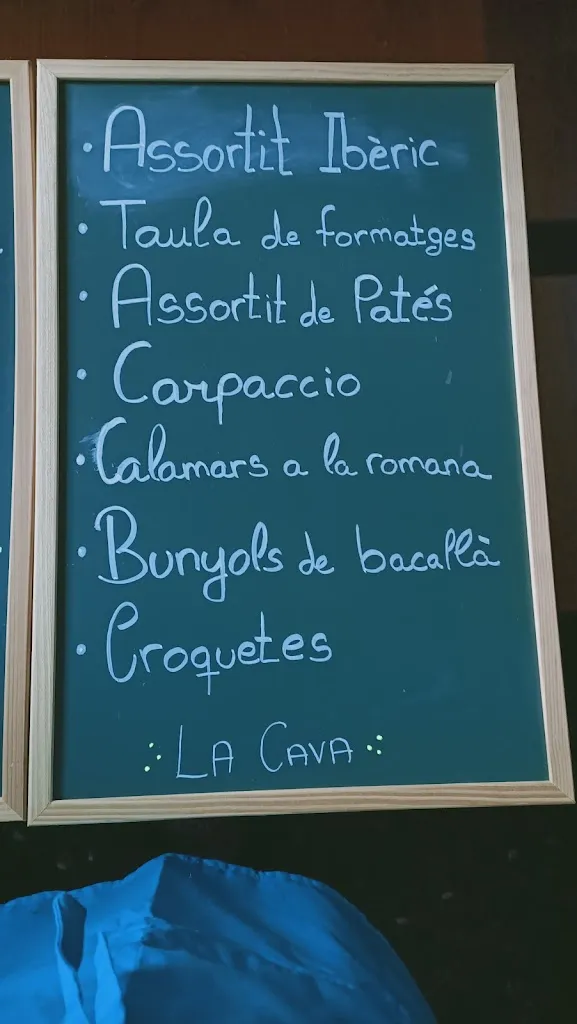 · Assortit Ibèric
· Taula de formatges
· Assortit de Patés
· Carpaccio
· Calamars a la romana
· Bunyols de bacallà
· Croquetes
LA CAVA